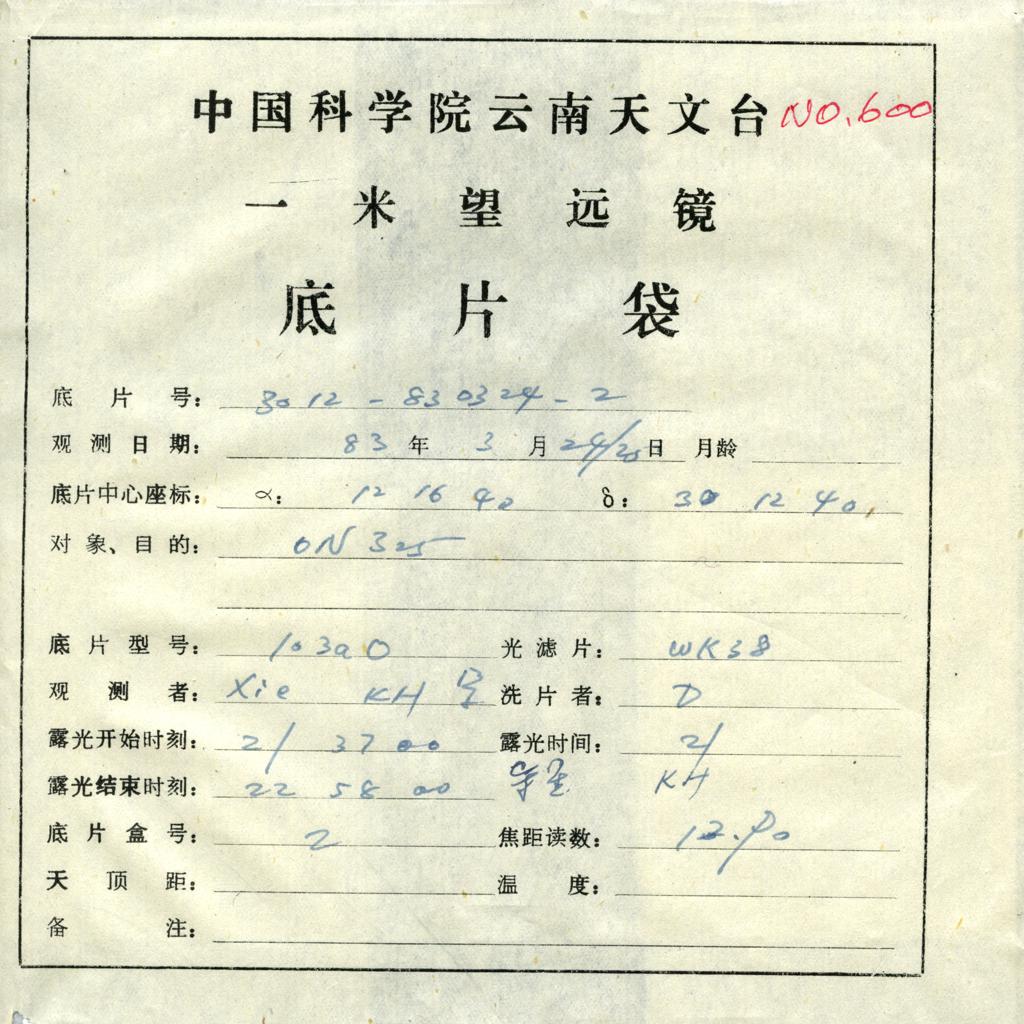 中国科学院云南天文台 NO.600
一米望远镜
底片袋
底片号: 3012-830324-2
观测日期: 83年 3月 24/25日 月龄
底片中心座标: α: 12 16 40 δ: 30 12 40
对象、目的: ON 325
底片型号: 103aO 光滤片: WK38
观测者: Xie KH 洗片者: D
露光开始时刻: 21 37 00 露光时间: 21
露光结束时刻: 22 58 00 KH
底片盒号: 2 焦距读数: 12.90
天顶距: 温度:
备注: